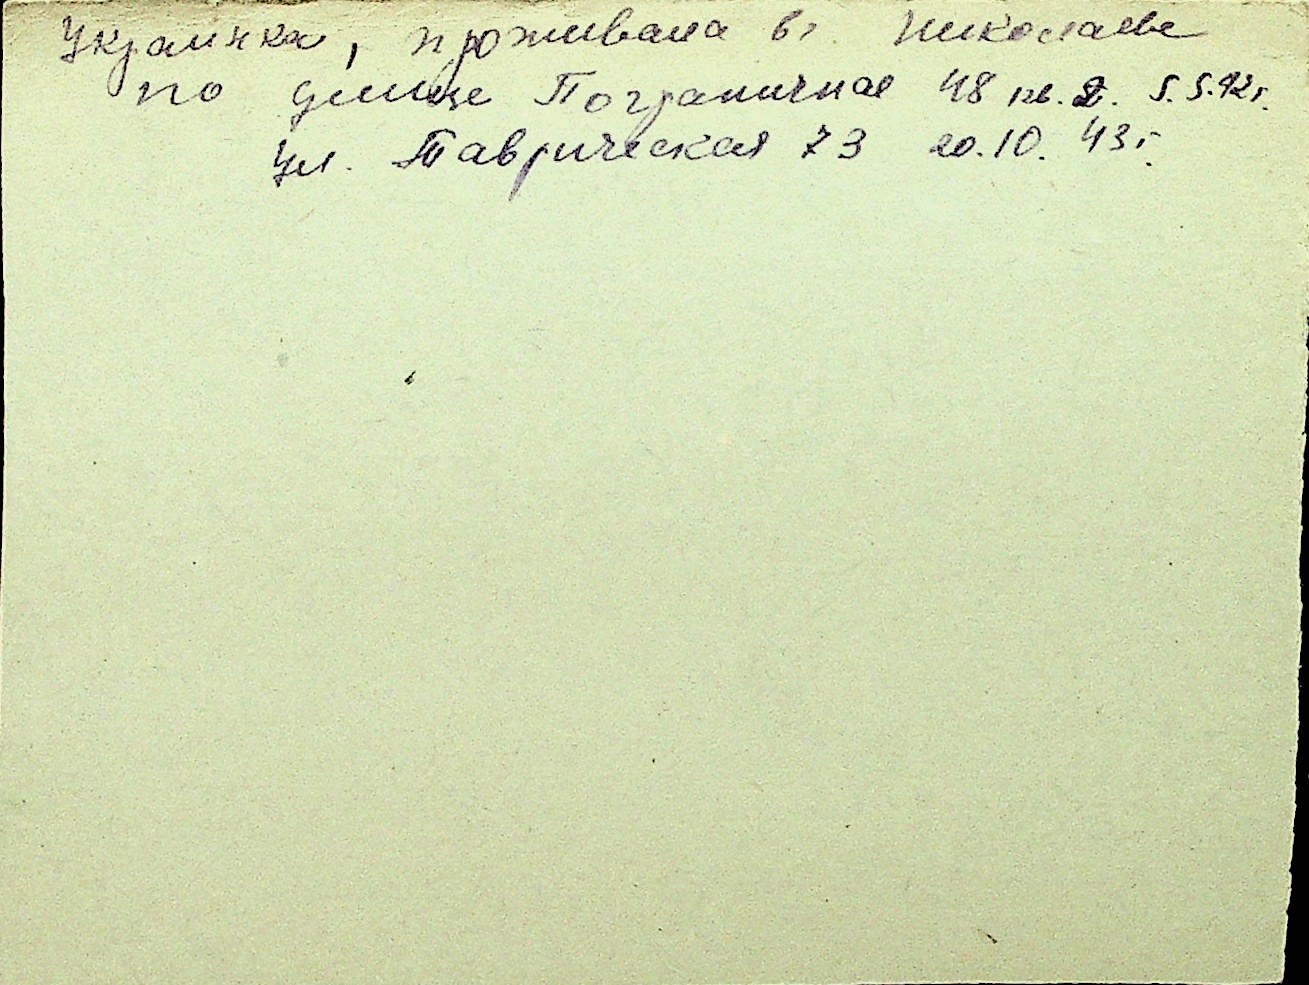 Украинка, проживала в г. Николаеве
по улице Пограничная 48 кв. 2. 5.5.42г.
ул. Таврическая 73 20.10. 43г.